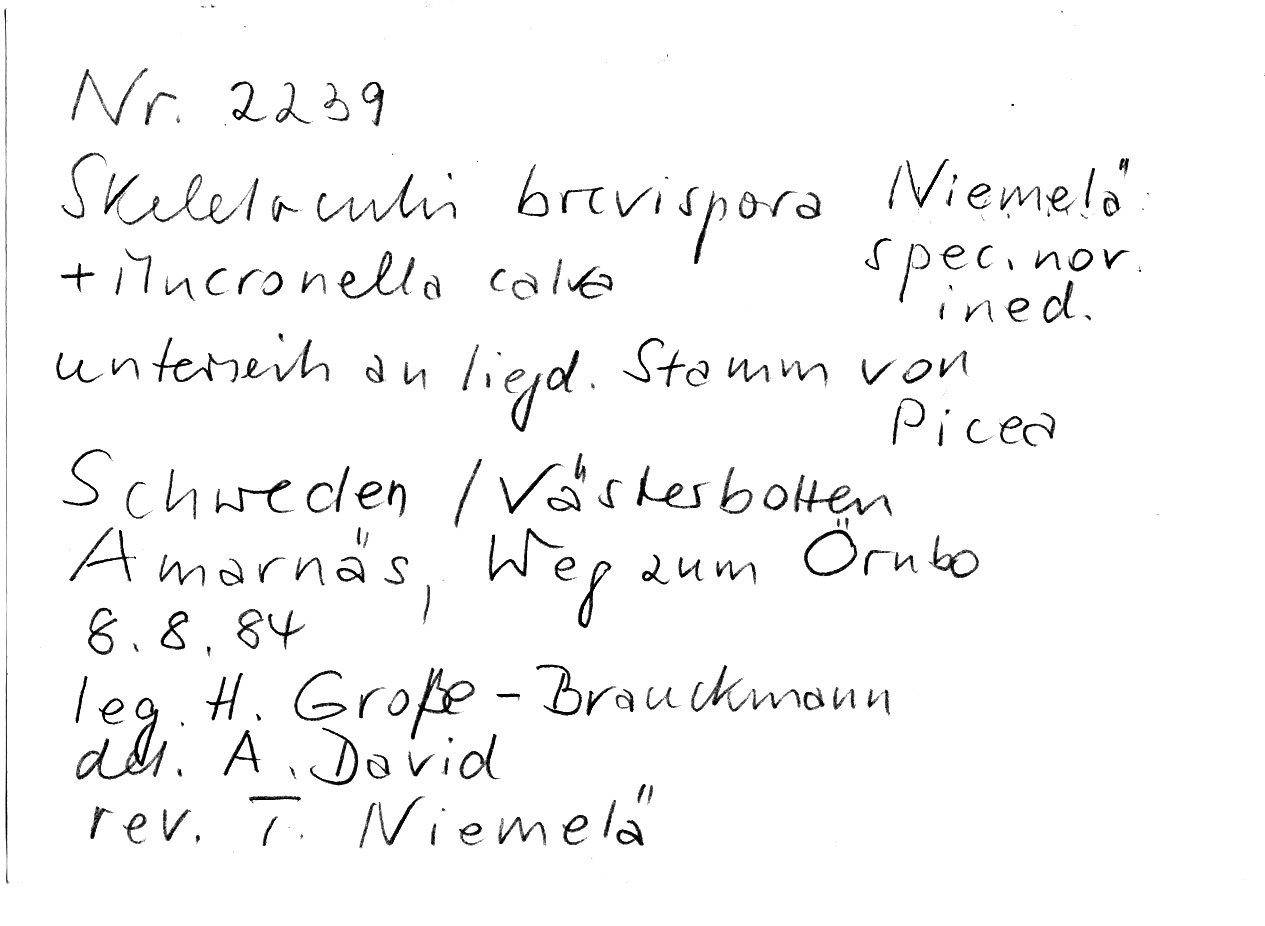 Nr. 2239
Skeletocutis brevispora Niemelä
spec. nov.
+ Mucronella calva
ined.
unterseits an liegd. Stamm von
Picea
Schweden / Västerbotten
Amarnäs, Weg zum Örnbo
8.8.84
leg. H. Große-Brauckmann
det. A. David
rev. T. Niemelä